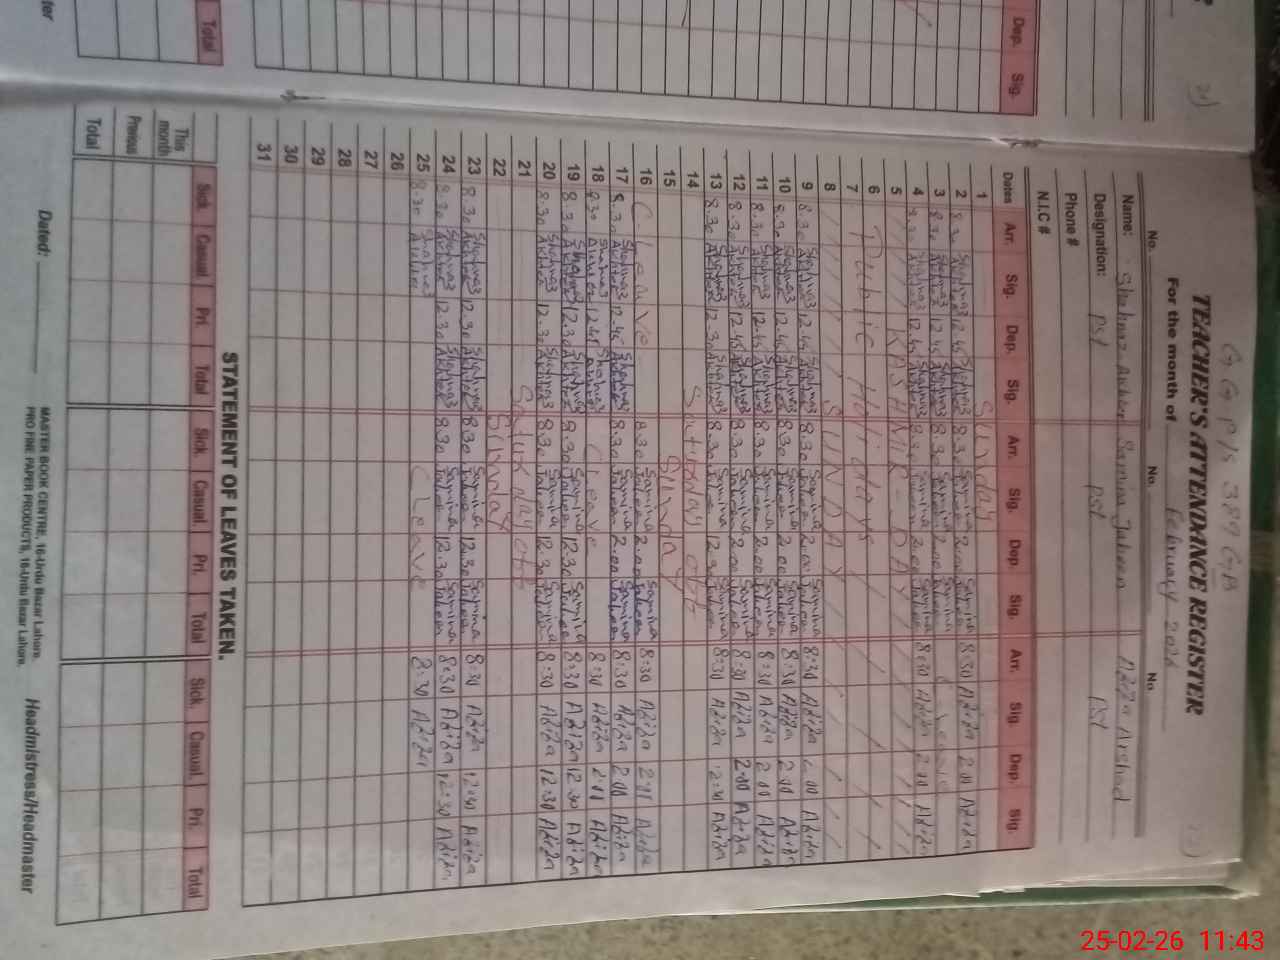 G G P/s 389 GB
TEACHER'S ATTENDANCE REGISTER
For the month of February 2026
No. No. No.
Name: Shahnaz Akhter Samina Jabeen Aziza Arshad
Designation: PST PST PST
Phone #
N.I.C #
Dates Arr. Sig. Dep. Sig. Arr. Sig. Dep. Sig. Arr. Sig. Dep. Sig.
1 Sunday
2 8.30 Shahnaz Akhter 12.45 Shahnaz Akhter 8.30 Samina Jabeen 2.00 Samina Jabeen 8:30 Aziza 2:00 Aziza
3 8.30 Shahnaz Akhter 12.45 Shahnaz Akhter 8.30 Samina Jabeen 2.00 Samina Jabeen
4 8.30 Shahnaz Akhter 12.45 Shahnaz Akhter 8.30 Samina Jabeen 2.00 Samina Jabeen 8:30 Aziza 2:00 Aziza
5 KASHMIR DAY
6 Public Holidays
7
8 SUNDAY
9 8.30 Shahnaz Akhter 12.45 Shahnaz Akhter 8.30 Samina Jabeen 2.00 Samina Jabeen 8:30 Aziza 2:00 Aziza
10 8.30 Shahnaz Akhter 12.45 Shahnaz Akhter 8.30 Samina Jabeen 2.00 Samina Jabeen 8:30 Aziza 2:00 Aziza
11 8.30 Shahnaz Akhter 12.45 Shahnaz Akhter 8.30 Samina Jabeen 2.00 Samina Jabeen 8:30 Aziza 2:00 Aziza
12 8.30 Shahnaz Akhter 12.45 Shahnaz Akhter 8.30 Samina Jabeen 2.00 Samina Jabeen 8:30 Aziza 2:00 Aziza
13 8.30 Shahnaz Akhter 12.30 Shahnaz Akhter 8.30 Samina Jabeen 12.30 Samina Jabeen 8:30 Aziza 12:30 Aziza
14 Saturday off
15 Sunday
16 C-Leave 8.30 Samina Jabeen 2.00 Samina Jabeen 8:30 Aziza 2:00 Aziza
17 8.30 Shahnaz Akhter 12.45 Shahnaz Akhter 8.30 Samina Jabeen 2.00 Samina Jabeen 8:30 Aziza 2:00 Aziza
18 8.30 Shahnaz Akhter 12.45 Shahnaz Akhter C Leave 8:30 Aziza 2:00 Aziza
19 8.30 Shahnaz Akhter 12.30 Shahnaz Akhter 8.30 Samina Jabeen 12.30 Samina Jabeen 8:30 Aziza 12:30 Aziza
20 8.30 Shahnaz Akhter 12.30 Shahnaz Akhter 8.30 Samina Jabeen 12.30 Samina Jabeen 8:30 Aziza 12:30 Aziza
21 Saturday off
22 Sunday
23 8.30 Shahnaz Akhter 12.30 Shahnaz Akhter 8.30 Samina Jabeen 12.30 Samina Jabeen 8:30 Aziza 12:30 Aziza
24 8.30 Shahnaz Akhter 12.30 Shahnaz Akhter 8.30 Samina Jabeen 12.30 Samina Jabeen 8:30 Aziza 12:30 Aziza
25 8.30 Shahnaz Akhter C Leave 8:30 Aziza
26
27
28
29
30
31
STATEMENT OF LEAVES TAKEN.
Sick. Casual Pri. Total Sick. Casual. Pri. Total Sick. Casual. Pri. Total
This month
Previous
Total
Dated:
MASTER BOOK CENTRE, 16-Urdu Bazar Lahore.
PRO FINE PAPER PRODUCTS, 16-Urdu Bazar Lahore.
Headmistress/Headmaster
Dep. Sig.
Total
25-02-26 11:43